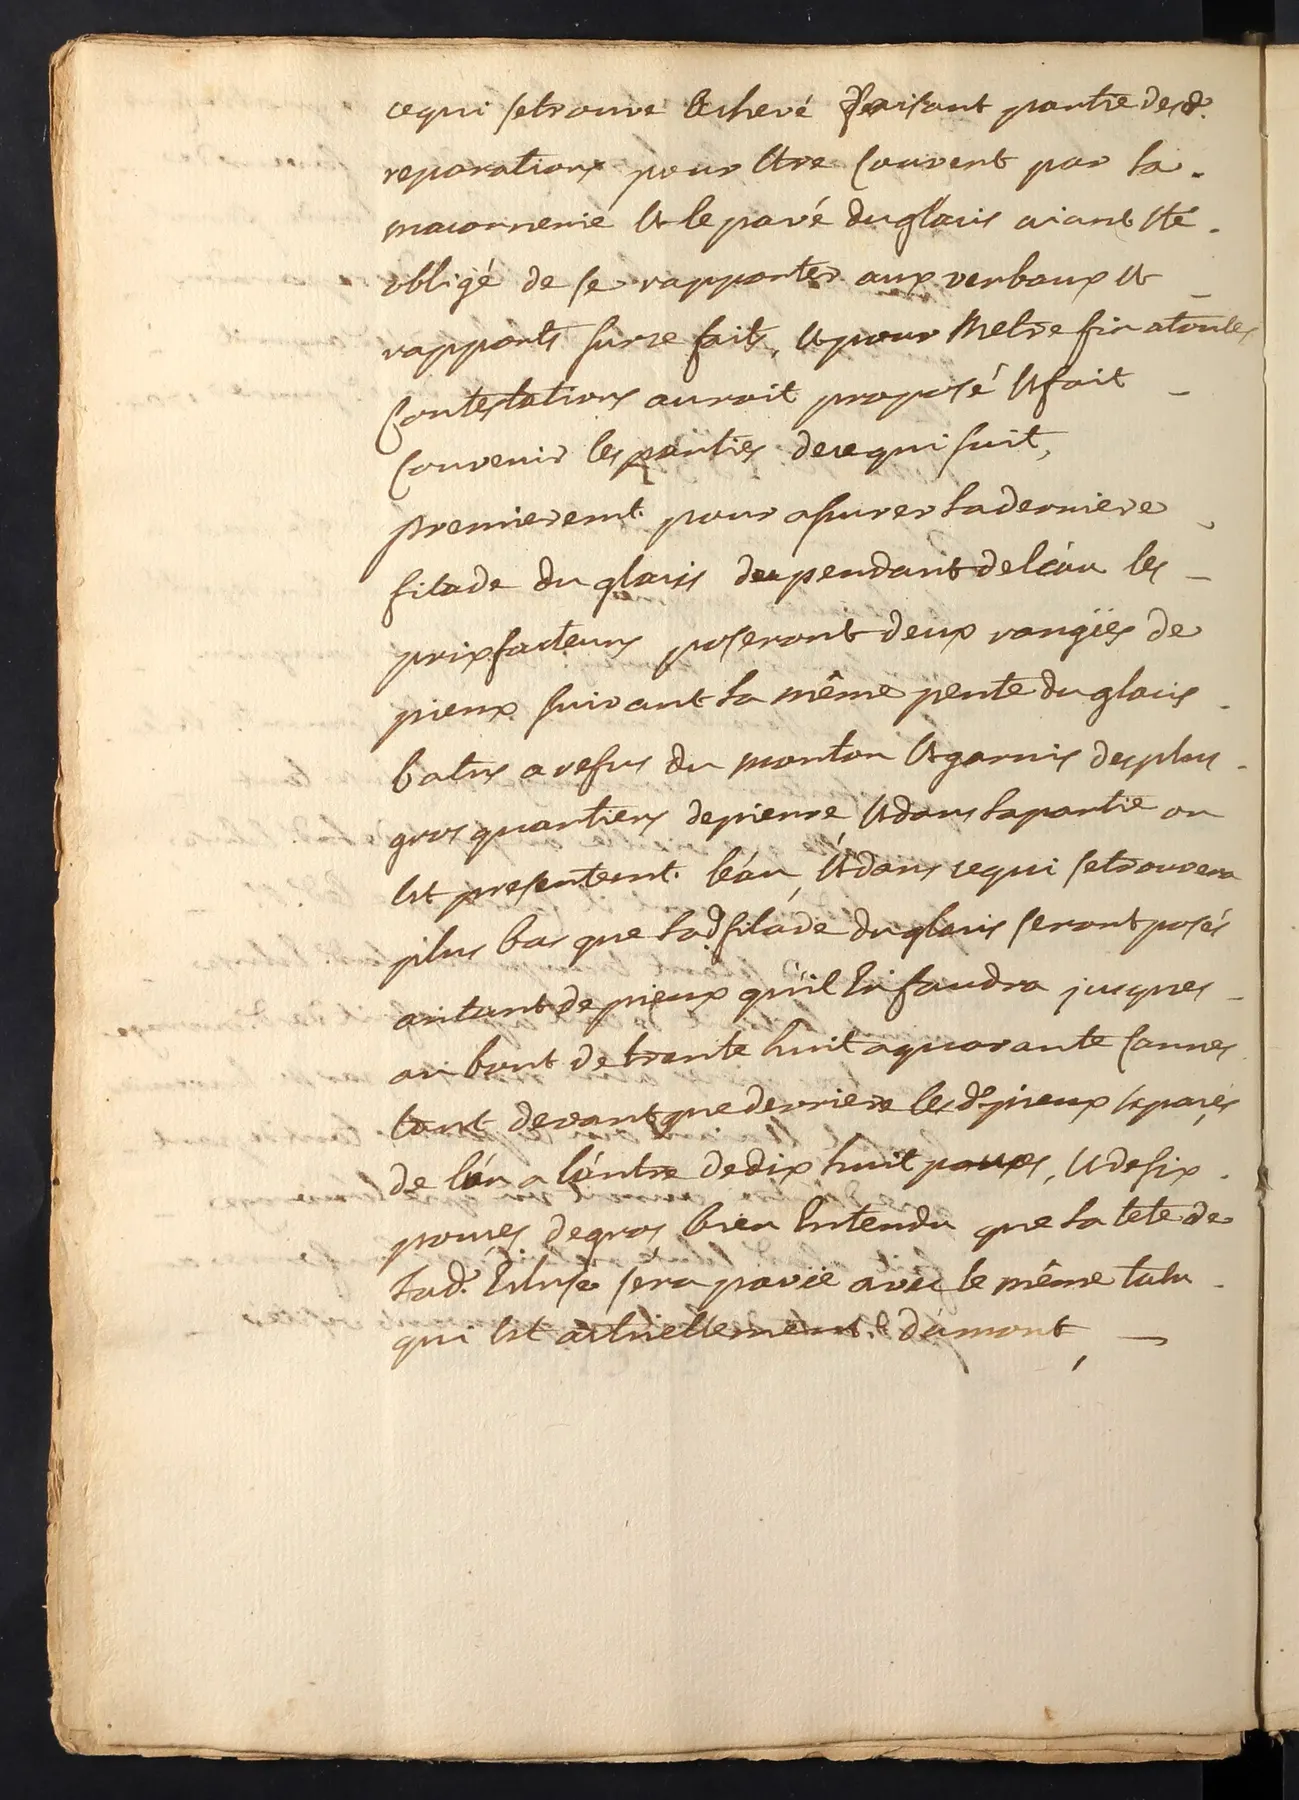 cequi setrouve Achevé faisant partie desd.
reparations pour Etre Couvert par la
maconnerie Et le pavé du glacis aiant Eté
obligé de se rapporter aux verbaux Et
rapports surce faits, Et pour Metre fin atoutes
Contestations auroit proposé Et fait
Convenir les parties decequi suit,
premieremt. pour assurer laderniere
filade du glacis du pendant deleau les
prixfacteurs poseront deux rangées de
pieux suivant la même pente du glacis
batus a refus du mouton Et garnis desplus
gros quartiers depierre Et dans lapartie ou
Est presentemt. leau, Et dans cequi setrouvera
plus bas que lad. filade du glacis seront posés
autant de pieux qu'il En faudra jusques
au bout de trente huit a quarante Cannes
tant devant que derriere lesd. pieux separés
de l'un a l'autre dedix huit pouces, Et desix
pouces degros bien Entendu que la tete de
lad. Ecluse sera pavée avec le même talu
qui Est actuellement. d'amont,